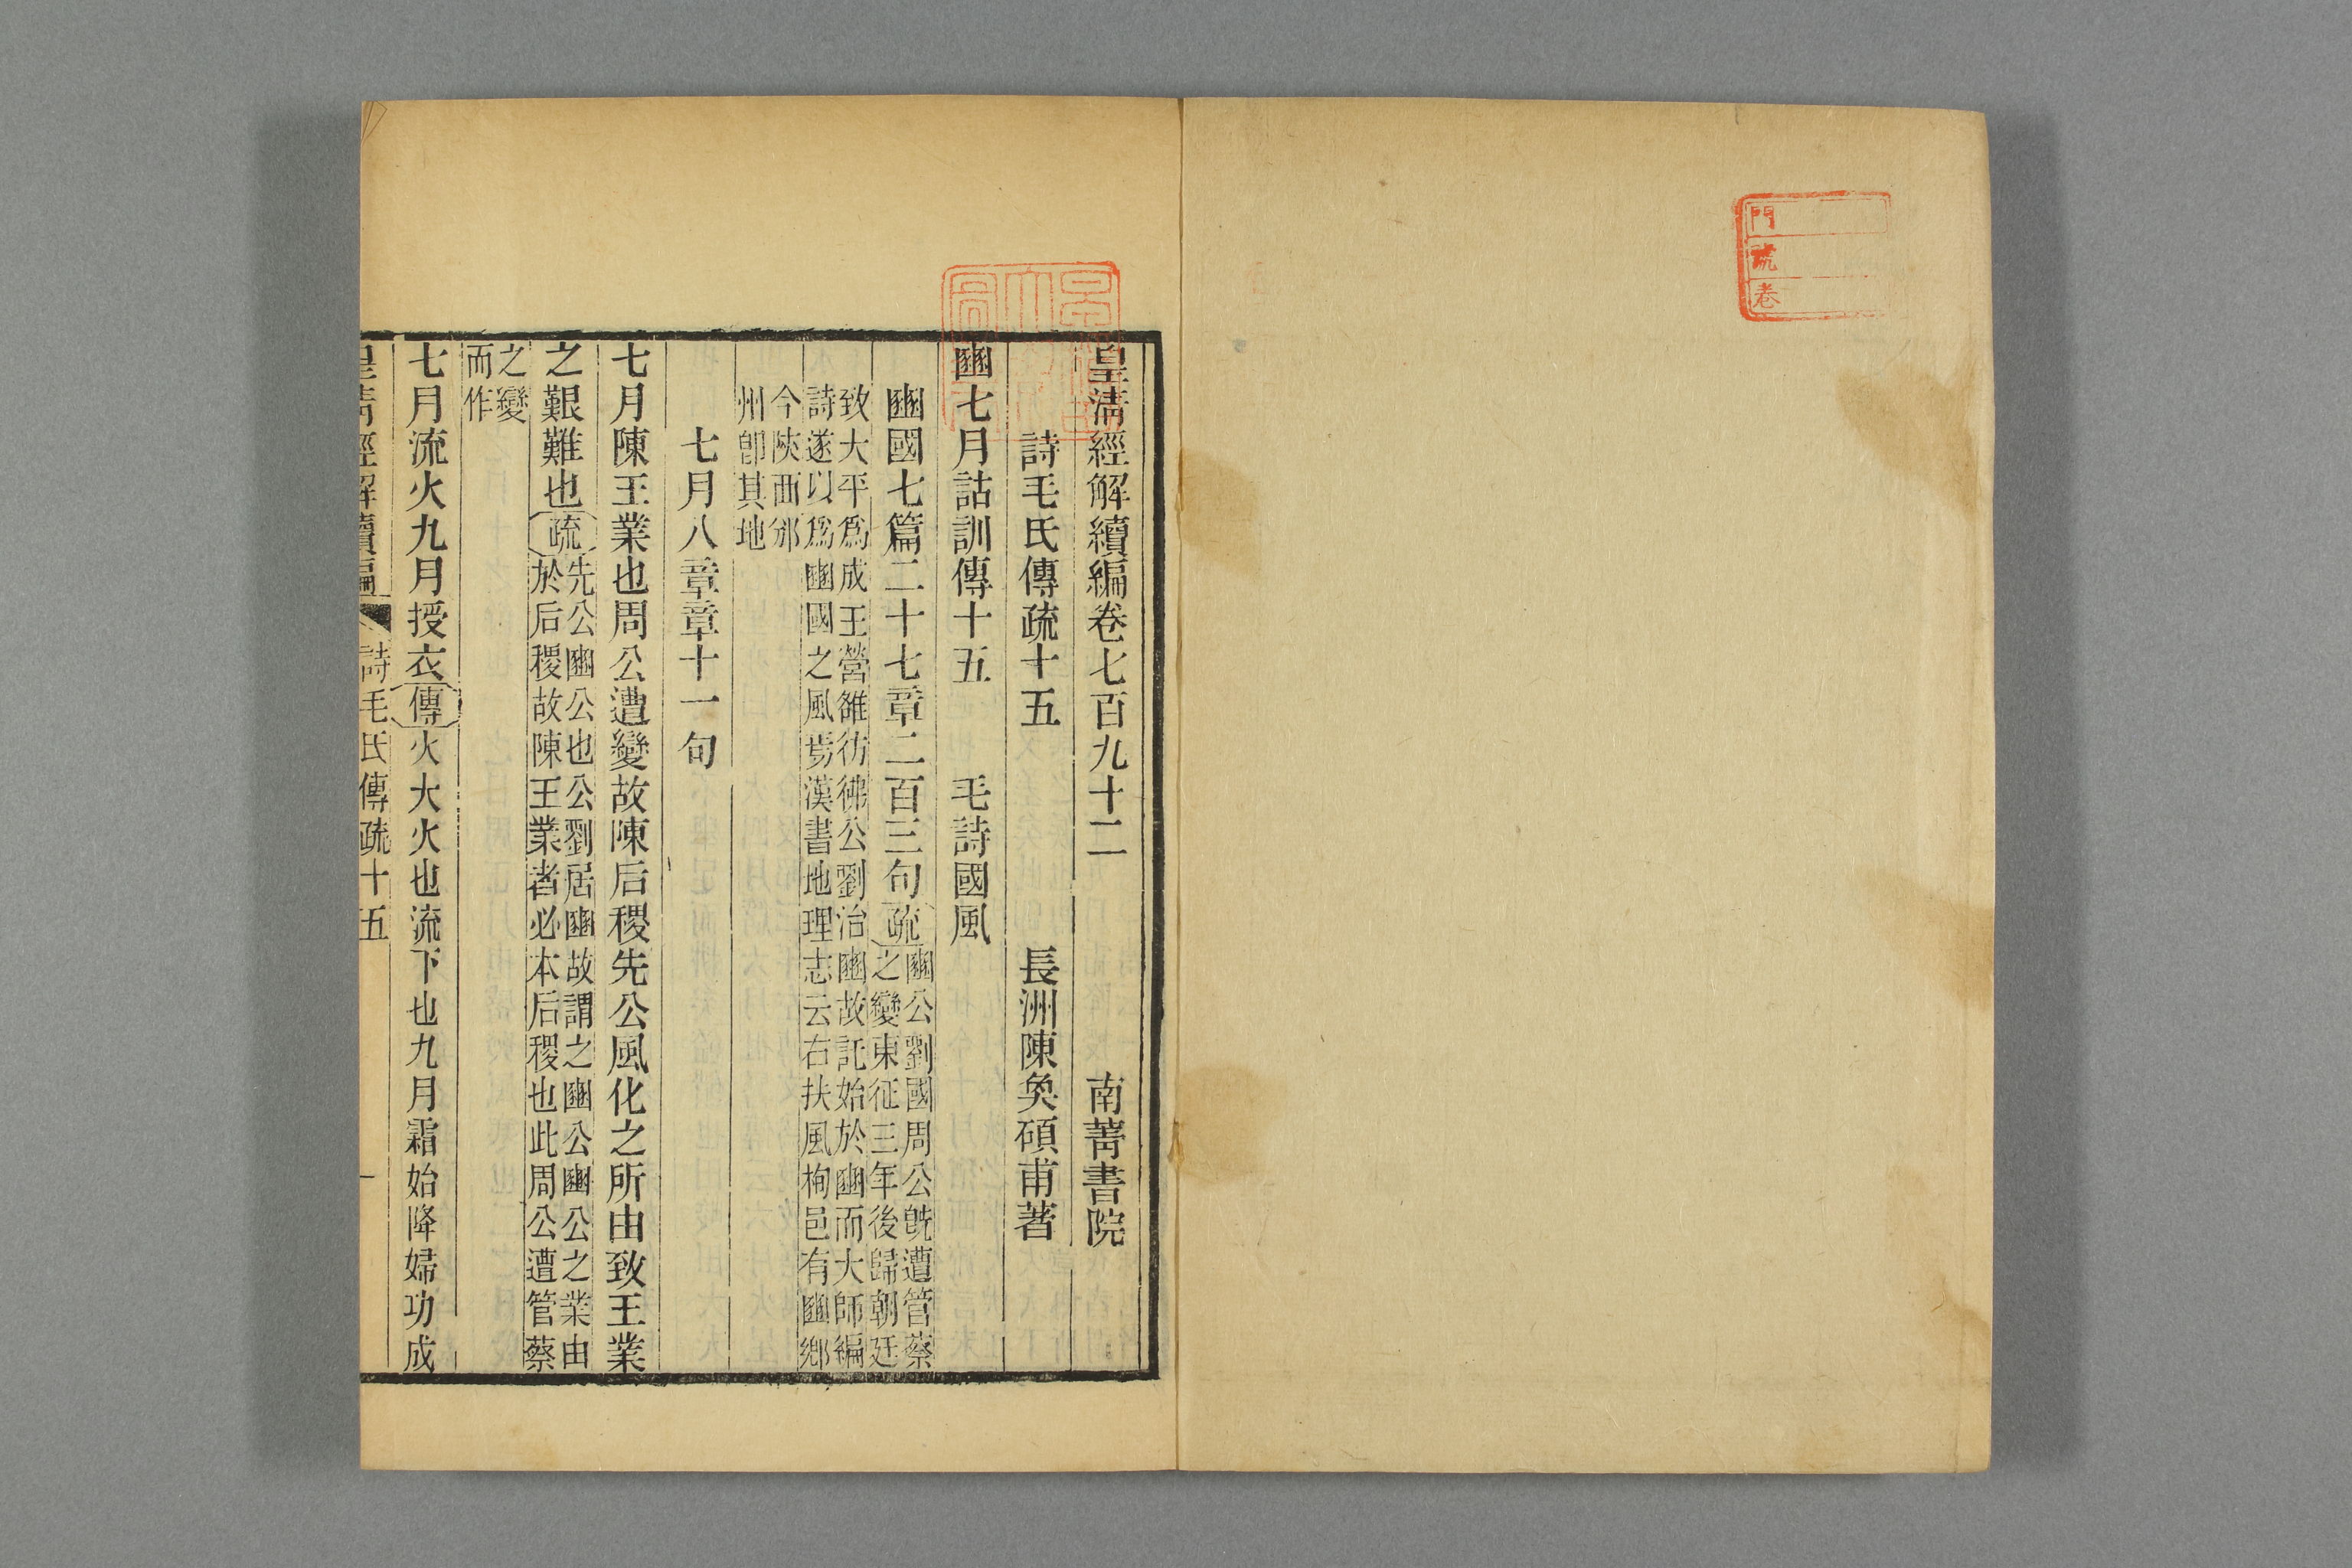 門
號
卷
皇清經解續編卷七百九十二　南菁書院
詩毛氏傳疏十五　長洲陳奐碩甫著
豳七月詁訓傳十五　毛詩國風
豳國七篇二十七章二百三句疏豳公劉國周公旣遭管蔡
之變東征三年後歸朝廷
致大平爲成王營雒彷彿公劉治豳故託始於豳而大師編
詩遂以爲豳國之風焉漢書地理志云右扶風栒邑有豳鄉
今陝西邠
州卽其地
七月八章章十一句
七月陳王業也周公遭變故陳后稷先公風化之所由致王業
之艱難也疏先公豳公也公劉居豳故謂之豳公豳公之業由
於后稷故陳王業者必本后稷也此周公遭管蔡
之變
而作
七月流火九月授衣傳火大火也流下也九月霜始降婦功成
皇清經解續編　詩毛氏傳疏十五　一